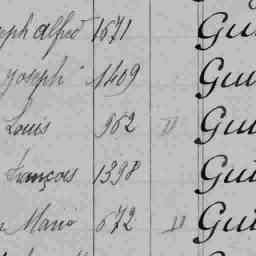 eph Alfred 1671 Gui
Joseph 1409 Gui
Louis 962 D Gui
François 1398 Gui
Mario 672 D Gui